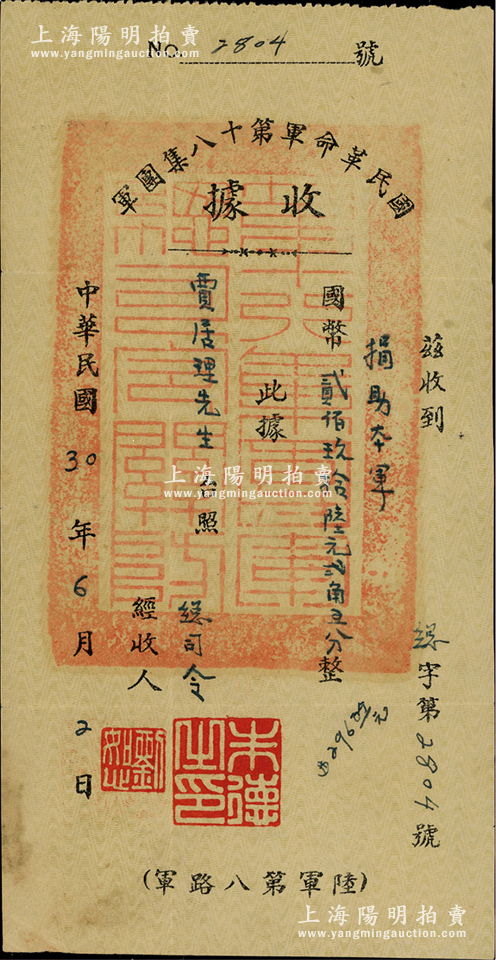 上海陽明拍賣
www.yangmingauction.com
No 2804 號
國民革命軍第十八集團軍
收據
茲收到
捐助本軍
國幣貳佰玖拾陸元弐角五分整
此據
賈居理先生 照
總字第2804號
總司令
經收人
朱德之印
中華民國30年6月2日
上海陽明拍賣
www.yangmingauction.com
(陸軍第八路軍)
上海陽明拍賣
www.yangmingauction.com